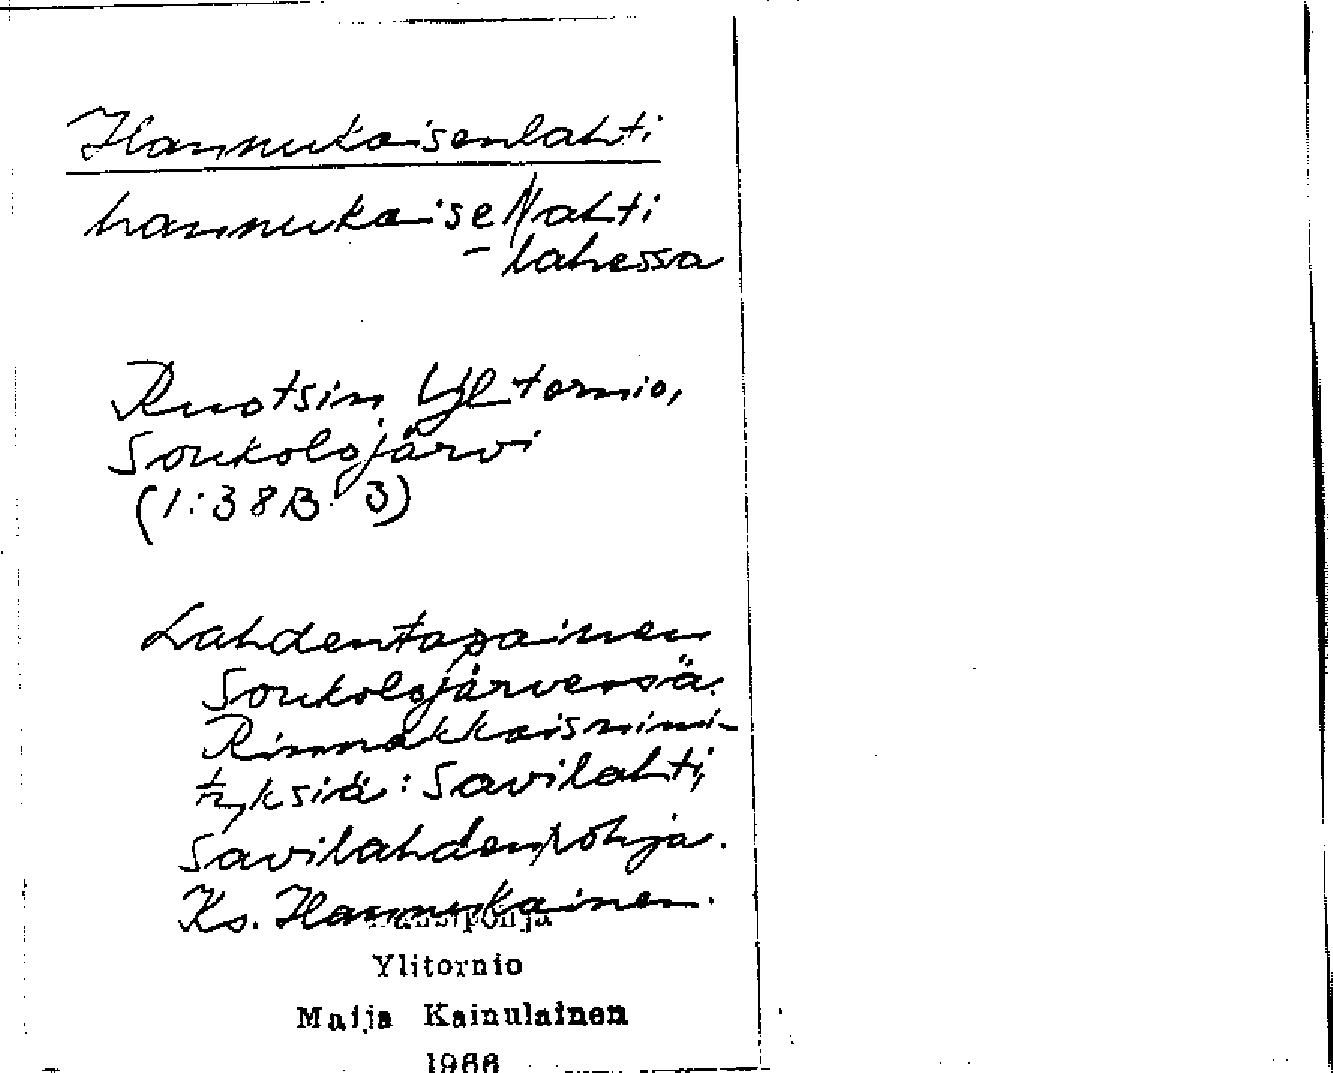 Hannukaisenlahti
hannukaisellahti
- lahessa
Ruotsin Yli tornio,
Soukolojärvi
(1:38B: 3)
Lahdentapainen
Soukolojärvessä.
Rinnakkaisnimi-
tyksiä: Savilahti,
Savilahdenpohja.
Ks. Hannukainen.
Länsipohja
Ylitornio
Maija Kainulainen
1966